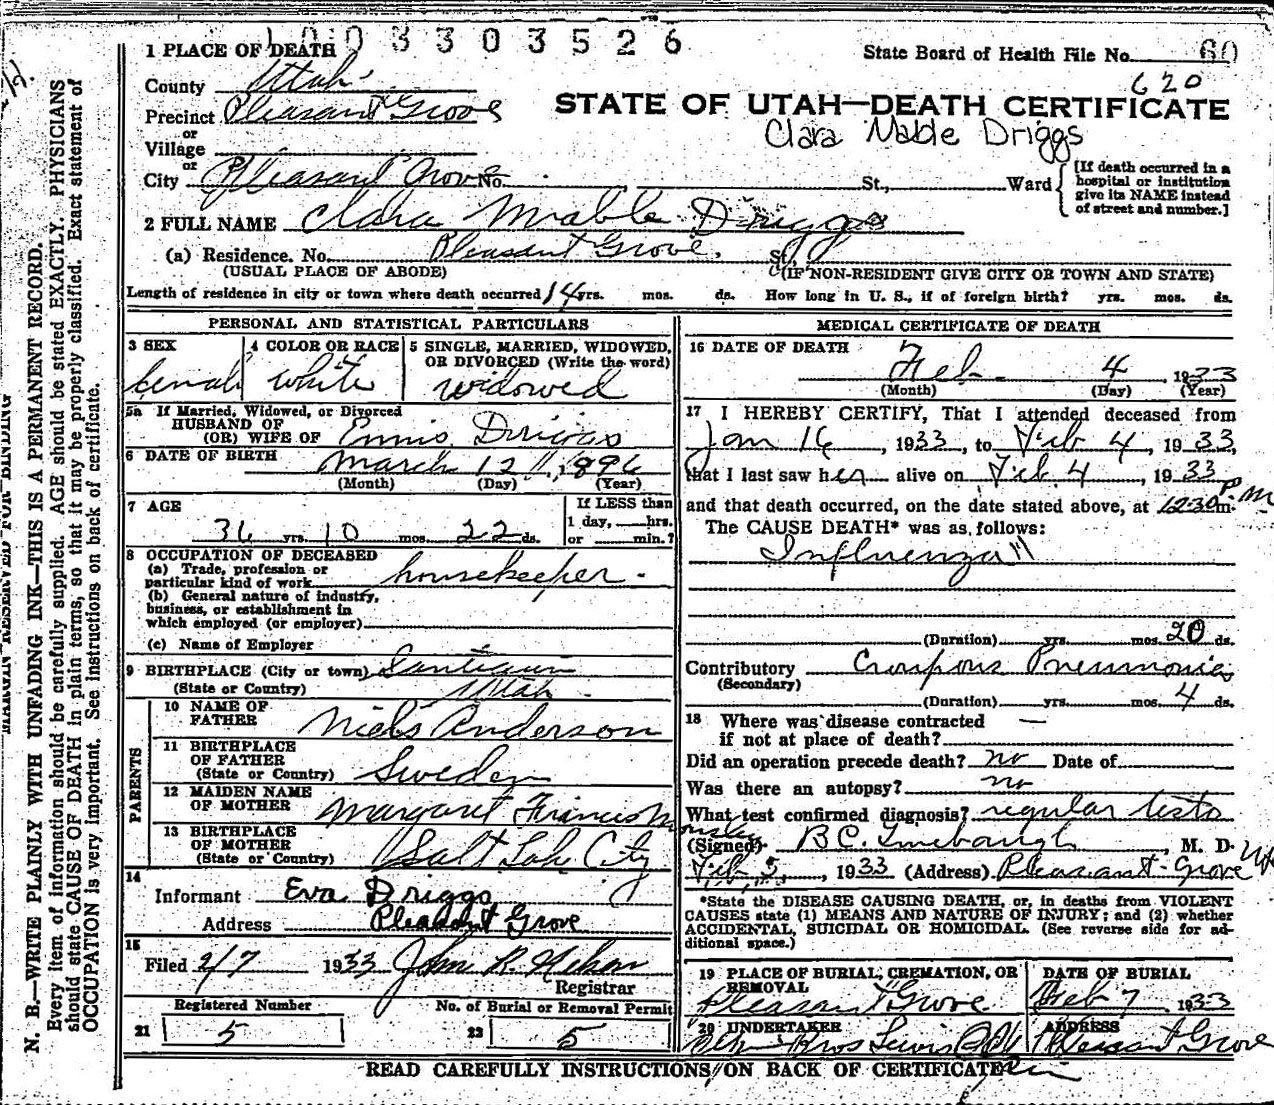 1003303526
State Board of Health File No. 60
620
1 PLACE OF DEATH
County Utah
Precinct Pleasant Grove
or
Village
or
City Pleasant Grove No. St., Ward
[If death occurred in a
hospital or institution
give its NAME instead
of street and number.]
STATE OF UTAH—DEATH CERTIFICATE
Clara Mable Driggs
2 FULL NAME Clara Mable Driggs
(a) Residence. No. Pleasant Grove. St.,
(USUAL PLACE OF ABODE) (IF NON-RESIDENT GIVE CITY OR TOWN AND STATE)
Length of residence in city or town where death occurred 14 yrs. mos. ds. How long in U. S., if of foreign birth? yrs. mos. ds.
PERSONAL AND STATISTICAL PARTICULARS
3 SEX female
4 COLOR OR RACE white
5 SINGLE, MARRIED, WIDOWED,
OR DIVORCED (Write the word)
widowed
5a If Married, Widowed, or Divorced
HUSBAND OF
(OR) WIFE OF Ennis Driggs
6 DATE OF BIRTH March 12, 1896
(Month) (Day) (Year)
7 AGE
36 yrs. 10 mos. 22 ds.
If LESS than
1 day, hrs.
or min.?
8 OCCUPATION OF DECEASED
(a) Trade, profession or
particular kind of work housekeeper
(b) General nature of industry,
business, or establishment in
which employed (or employer)
(c) Name of Employer
9 BIRTHPLACE (City or town)
(State or Country) Utah
PARENTS
10 NAME OF
FATHER Niels Anderson
11 BIRTHPLACE
OF FATHER
(State or Country) Sweden
12 MAIDEN NAME
OF MOTHER Margaret Francis
13 BIRTHPLACE
OF MOTHER
(State or Country) Salt Lake City
14
Informant Eva Driggs
Address Pleasant Grove
15
Filed 2/7 1933 John R.
Registrar
Registered Number
21 5
No. of Burial or Removal Permit
22 5
MEDICAL CERTIFICATE OF DEATH
16 DATE OF DEATH
Feb. 4, 1933
(Month) (Day) (Year)
17 I HEREBY CERTIFY, That I attended deceased from
Jan 16, 1933, to Feb 4, 1933,
that I last saw her alive on Feb. 4, 1933
and that death occurred, on the date stated above, at 12:30 m. P.M
The CAUSE DEATH* was as follows:
Influenza
(Duration) yrs. mos. 20 ds.
Contributory Croupous Pneumonia
(Secondary)
(Duration) yrs. mos. 4 ds.
18 Where was disease contracted —
if not at place of death?
Did an operation precede death? no Date of
Was there an autopsy? no
What test confirmed diagnosis? regular tests
(Signed) B.C. Linebaugh, M. D.
Feb. 5, 1933 (Address) Pleasant Grove Ut
*State the DISEASE CAUSING DEATH, or, in deaths from VIOLENT
CAUSES state (1) MEANS AND NATURE OF INJURY; and (2) whether
ACCIDENTAL, SUICIDAL OR HOMICIDAL. (See reverse side for ad-
ditional space.)
19 PLACE OF BURIAL, CREMATION, OR
REMOVAL
Pleasant Grove
DATE OF BURIAL
Feb 7 1933
20 UNDERTAKER
Bros
ADDRESS
Pleasant Grove
READ CAREFULLY INSTRUCTIONS ON BACK OF CERTIFICATE
MARGIN RESERVED FOR BINDING
N. B.—WRITE PLAINLY WITH UNFADING INK—THIS IS A PERMANENT RECORD.
Every item of information should be carefully supplied. AGE should be stated EXACTLY. PHYSICIANS
should state CAUSE OF DEATH in plain terms, so that it may be properly classified. Exact statement of
OCCUPATION is very important. See instructions on back of certificate.